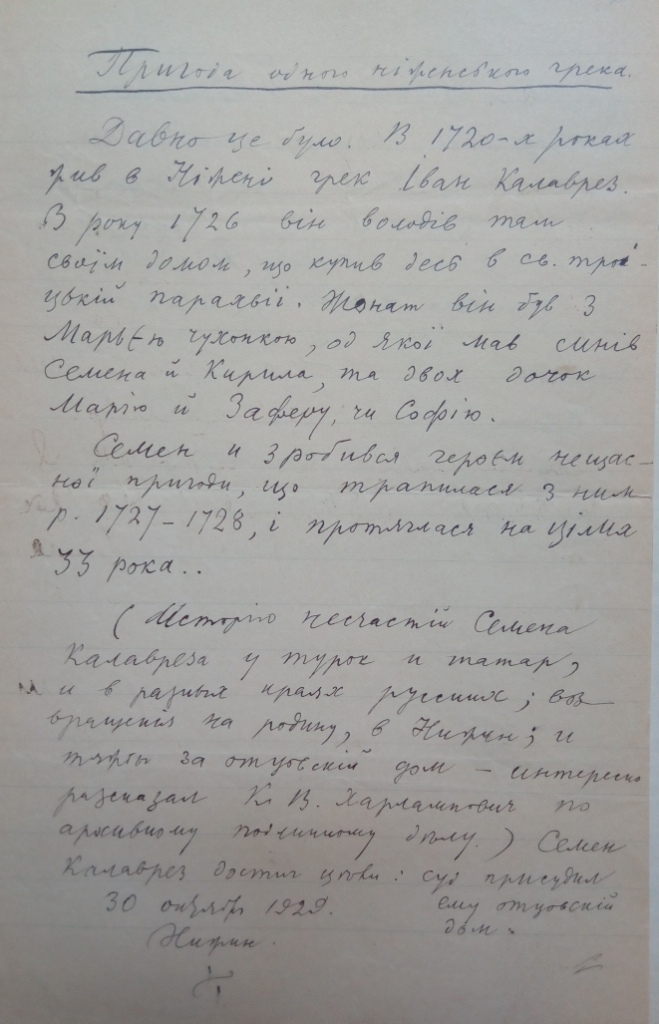 Пригода одного ніженського грека.
Давно це було. В 1720-х роках
жив в Ніжені грек Іван Калаврез.
В року 1726 він володів там
своїм домом, що купив десь в св. трої-
цькій парахвії. Жонат він був з
Марьєю чухонкою, од якої мав синів
Семена й Кирила, та двох дочок
Марію й Заферу, чи Софію.
Семен и зробився героєм нещас-
ної пригоди, що трапилася з ним
р. 1727–1728, і протяглася на цілия
33 рока..
(Исторію несчастій Семена
Калавреза у турок и татар,
и в разных краях русских; воз-
вращенія на родину, в Нижин; и
тяжбы за отцовскій дом – интересно
разсказал К. В. Харлампович по
архивному подлинному дѣлу.) Семен
Калаврез достиг цѣли: суд присудил
ему отцовскій
дом.
30 октября 1929.
Нижин.